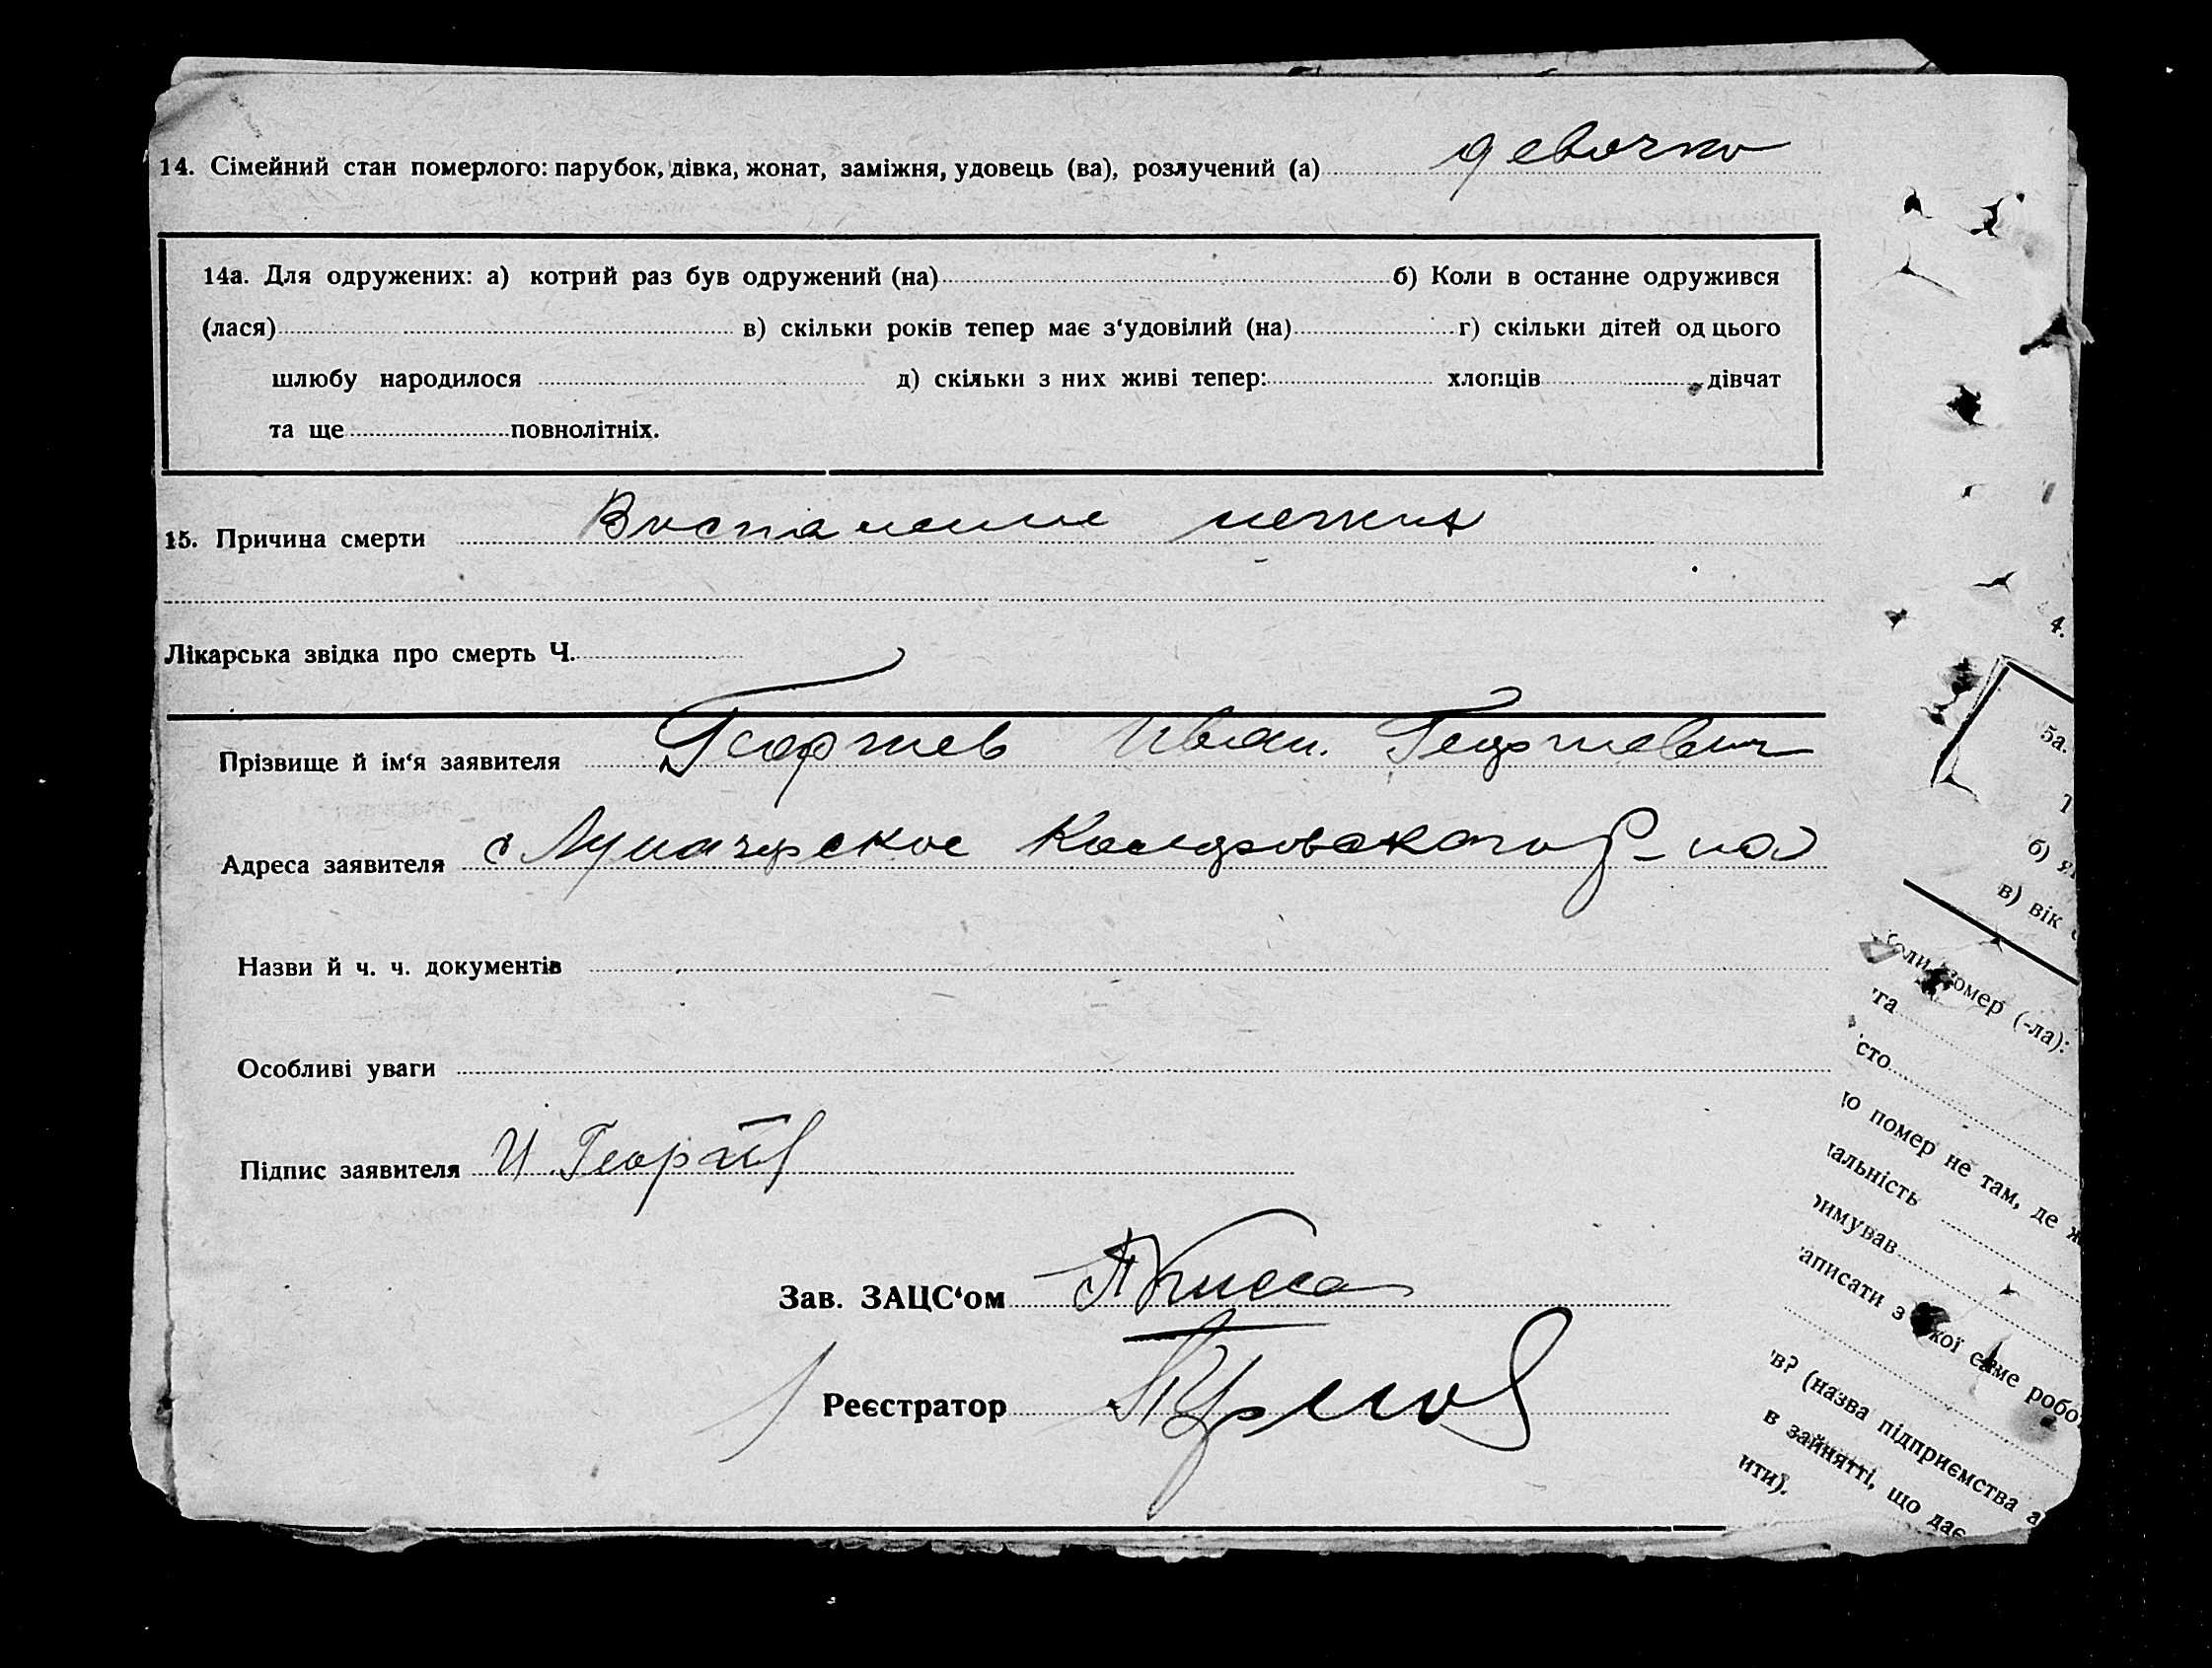 14. Сімейний стан померлого: парубок, дівка, жонат, заміжня, удовець (ва), розлучений (а) девочка
14а. Для одружених: а) котрий раз був одружений (на) б) Коли в останне одружився
(лася) в) скільки років тепер має з‘удовілий (на) г) скільки дітей од цього
шлюбу народилося д) скільки з них живі тепер: хлопців дівчат
та ще повнолітніх.
15. Причина смерти Воспаление легких
Лікарська звідка про смерть Ч.
Прізвище й ім‘я заявителя Георгиев Иван Георгиевич
Адреса заявителя с Луначарское р-на
Назви й ч. ч. документів
Особливі уваги
Підпис заявителя И Георгиев
Зав. ЗАЦС‘ом
Реєстратор
4.
5а.
б)
в) вік
омер (-ла):
та
сто
помер не там, де
альність
имував
аписати з кої саме робо
в? (назва підприємства а
в зайнятті, що дає
ити).